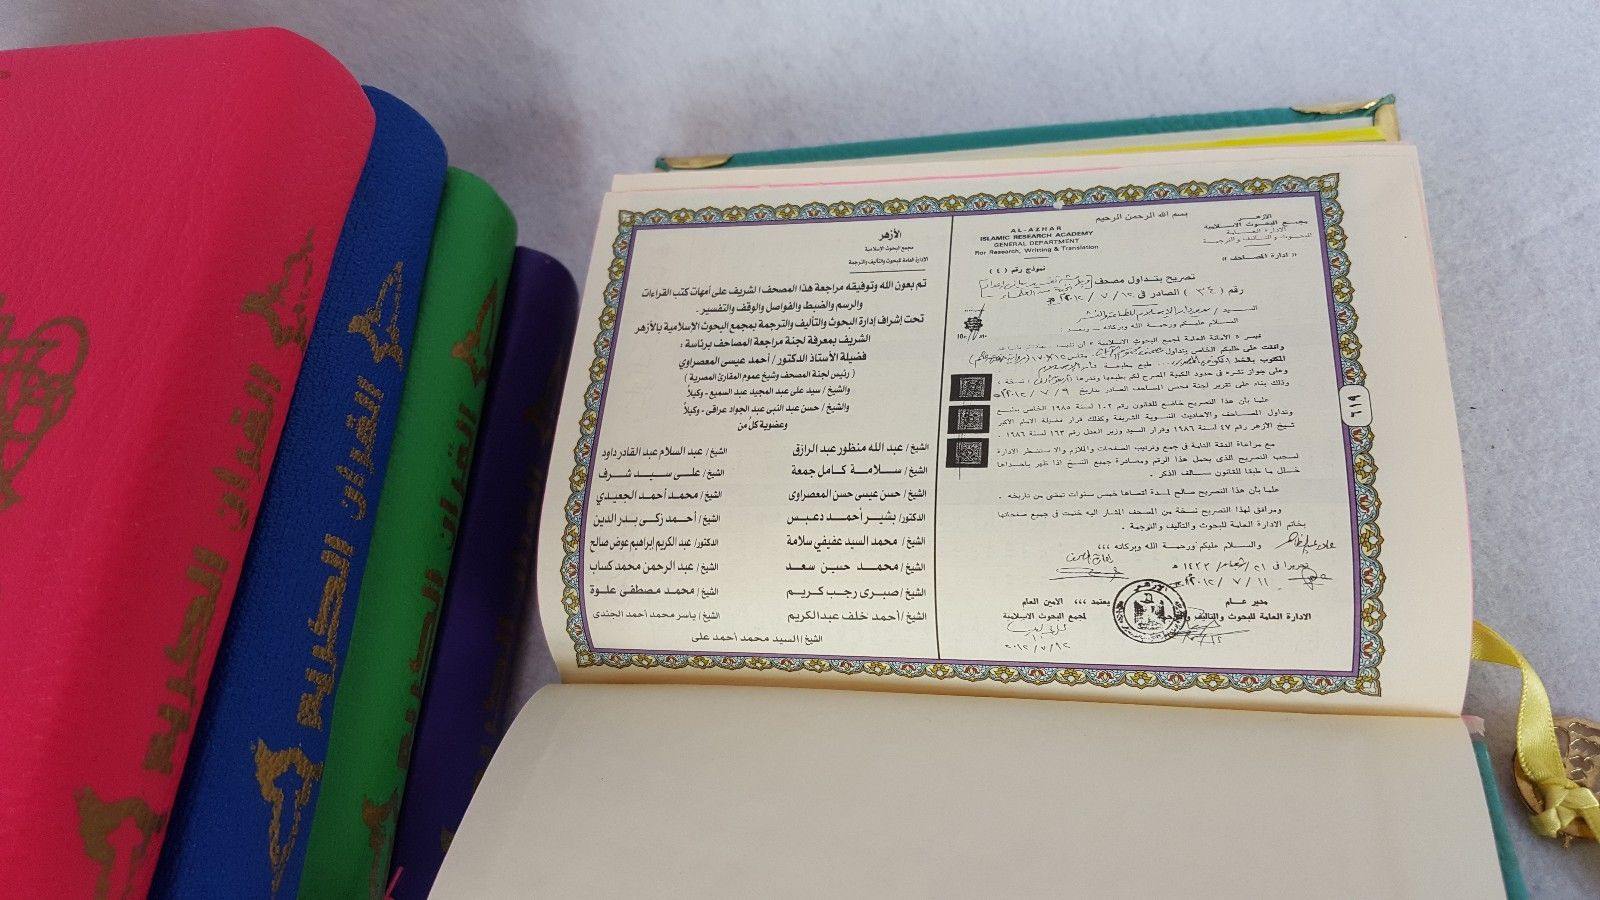 القرآن الكريم
القرآن الكريم
القرآن الكريم
بسم الله الرحمن الرحيم
الأزهر
مجمع البحوث الاسلامية
الادارة العامة
للبحوث والتأليف والترجمة
« ادارة المصاحف »
AL-AZHAR
ISLAMIC RESEARCH ACADEMY
GENERAL DEPARTMENT
For Research, Writting & Translation
نموذج رقم ( ٤ )
تصريح بتداول مصحف
رقم ( ٣٤ ) الصادر فى ١٢ / ٧ / ٢٠١٢ م
السيد /
السلام عليكم ورحمة الله وبركاته – وبعد :
وعلى جواز نشره فى حدود الكمية المصرح لكم بطبعها وقدرها نسخة ،
وذلك بناء على تقرير لجنة فحص المصاحف الصادر بتاريخ ٩ / ٧ / ٢٠١٢
علما بأن هذا التصريح خاضع للقانون رقم ١٠٢ لسنة ١٩٨٥ الخاص بتنظيم
وتداول المصاحف والاحاديث النبوية الشريفة وكذلك قرار فضيلة الامام الاكبر
شيخ الأزهر رقم ٤٧ لسنة ١٩٨٦ وقرار السيد وزير العدل رقم ١٦٣ لسنة ١٩٨٦ .
مع مراعاة الدقة التامة فى جمع وترتيب الصفحات والملازم والا ستضطر الادارة
لسحب التصريح الذى يحمل هذا الرقم ومصادرة جميع النسخ اذا ظهر باحداها
خلل ما طبقا للقانون سالف الذكر .
علما بأن هذا التصريح صالح لمدة أقصاها خمس سنوات تمضى من تاريخه .
ومرافق لهذا التصريح نسخة من المصحف المشار اليه ختمت فى جميع صفحاتها
بخاتم الادارة العامة للبحوث والتأليف والترجمة .
والسلام عليكم ورحمة الله وبركاته ،،،
تحريرا فى ٢١ / شعبان / ١٤٣٣ هـ
١١ / ٧ / ٢٠١٢ م
مدير عام
الادارة العامة للبحوث والتأليف والترجمة
يعتمد ،،، الامين العام
لمجمع البحوث الاسلامية
٦١٩
الأزهر
مجمع البحوث الإسلامية
الإدارة العامة للبحوث والتأليف والترجمة
تم بعون الله وتوفيقه مراجعة هذا المصحف الشريف على أمهات كتب القراءات
والرسم والضبط والفواصل والوقف والتفسير .
تحت إشراف إدارة البحوث والتأليف والترجمة بمجمع البحوث الإسلامية بالأزهر
الشريف بمعرفة لجنة مراجعة المصاحف برئاسة :
فضيلة الأستاذ الدكتور / أحمد عيسى المعصراوي
( رئيس لجنة المصحف وشيخ عموم المقارئ المصرية )
والشيخ / سيد على عبد المجيد عبد السميع - وكيلاً
والشيخ / حسن عبد النبى عبد الجواد عراقى - وكيلاً
وعضوية كل من
الشيخ / عبد الله منظور عبد الرازق الشيخ / عبد السلام عبد القادر داود
الشيخ / سلامة كامل جمعة الشيخ / على سيد شرف
الشيخ / حسن عيسى حسن المعصراوى الشيخ / محمد أحمد الجعيدي
الدكتور / بشير أحمد دعبس الشيخ / أحمد زكى بدر الدين
الشيخ / محمد السيد عفيفي سلامة الدكتور / عبد الكريم إبراهيم عوض صالح
الشيخ / محمد حسين سعد الشيخ / عبد الرحمن محمد كساب
الشيخ / صبرى رجب كريم الشيخ / محمد مصطفى علوة
الشيخ / أحمد خلف عبد الكريم الشيخ / ياسر محمد أحمد الجندى
الشيخ / السيد محمد أحمد على